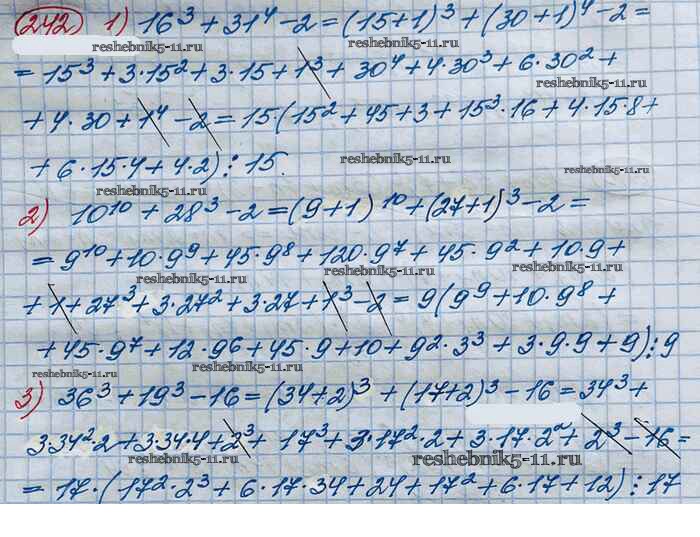 242 1) 16³ + 31⁴ - 2 = (15+1)³ + (30+1)⁴ - 2 =
reshebnik5-11.ru reshebnik5-11.ru
= 15³ + 3·15² + 3·15 + 1³ + 30⁴ + 4·30³ + 6·30² +
reshebnik5-11.ru
+ 4·30 + 1⁴ - 2 = 15·(15² + 45 + 3 + 15³·16 + 4·15·8 +
+ 6·15·4 + 4·2) ⋮ 15.
reshebnik5-11.ru reshebnik5-11.ru
reshebnik5-11.ru
2) 10¹⁰ + 28³ - 2 = (9+1)¹⁰ + (27+1)³ - 2 =
= 9¹⁰ + 10·9⁹ + 45·9⁸ + 120·9⁷ + 45·9² + 10·9 +
reshebnik5-11.ru reshebnik5-11.ru
+ 1 + 27³ + 3·27² + 3·27 + 1³ - 2 = 9(9⁹ + 10·9⁸ +
+ 45·9⁷ + 12·9⁶ + 45·9 + 10 + 9²·3³ + 3·9·9 + 9) ⋮ 9
reshebnik5-11.ru reshebnik5-11.ru
3) 36³ + 19³ - 16 = (34+2)³ + (17+2)³ - 16 = 34³ +
3·34²·2 + 3·34·4 + 2³ + 17³ + 3·17²·2 + 3·17·2² + 2³ - 16 =
reshebnik5-11.ru reshebnik5-11.ru
= 17·(17²·2³ + 6·17·34 + 24 + 17² + 6·17 + 12) ⋮ 17